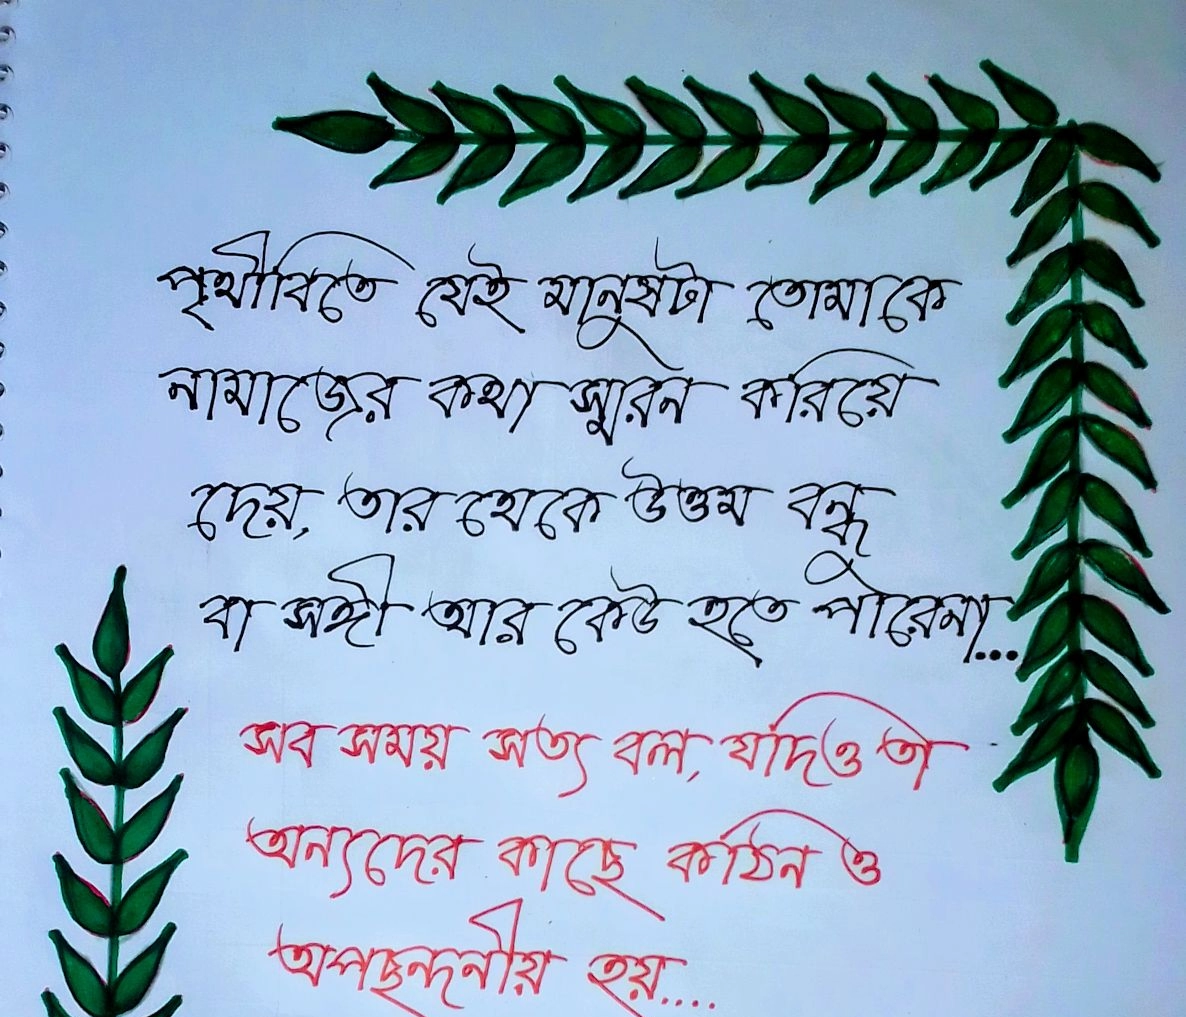 পৃথীবিতে যেই মানুষটা তোমাকে
নামাজের কথা স্মরন করিয়ে
দেয়, তার থেকে উত্তম বন্ধু
বা সঙ্গী আর কেউ হতে পারেনা...
সব সময় সত্য বল, যদিও তা
অন্যদের কাছে কঠিন ও
অপছন্দনীয় হয়....